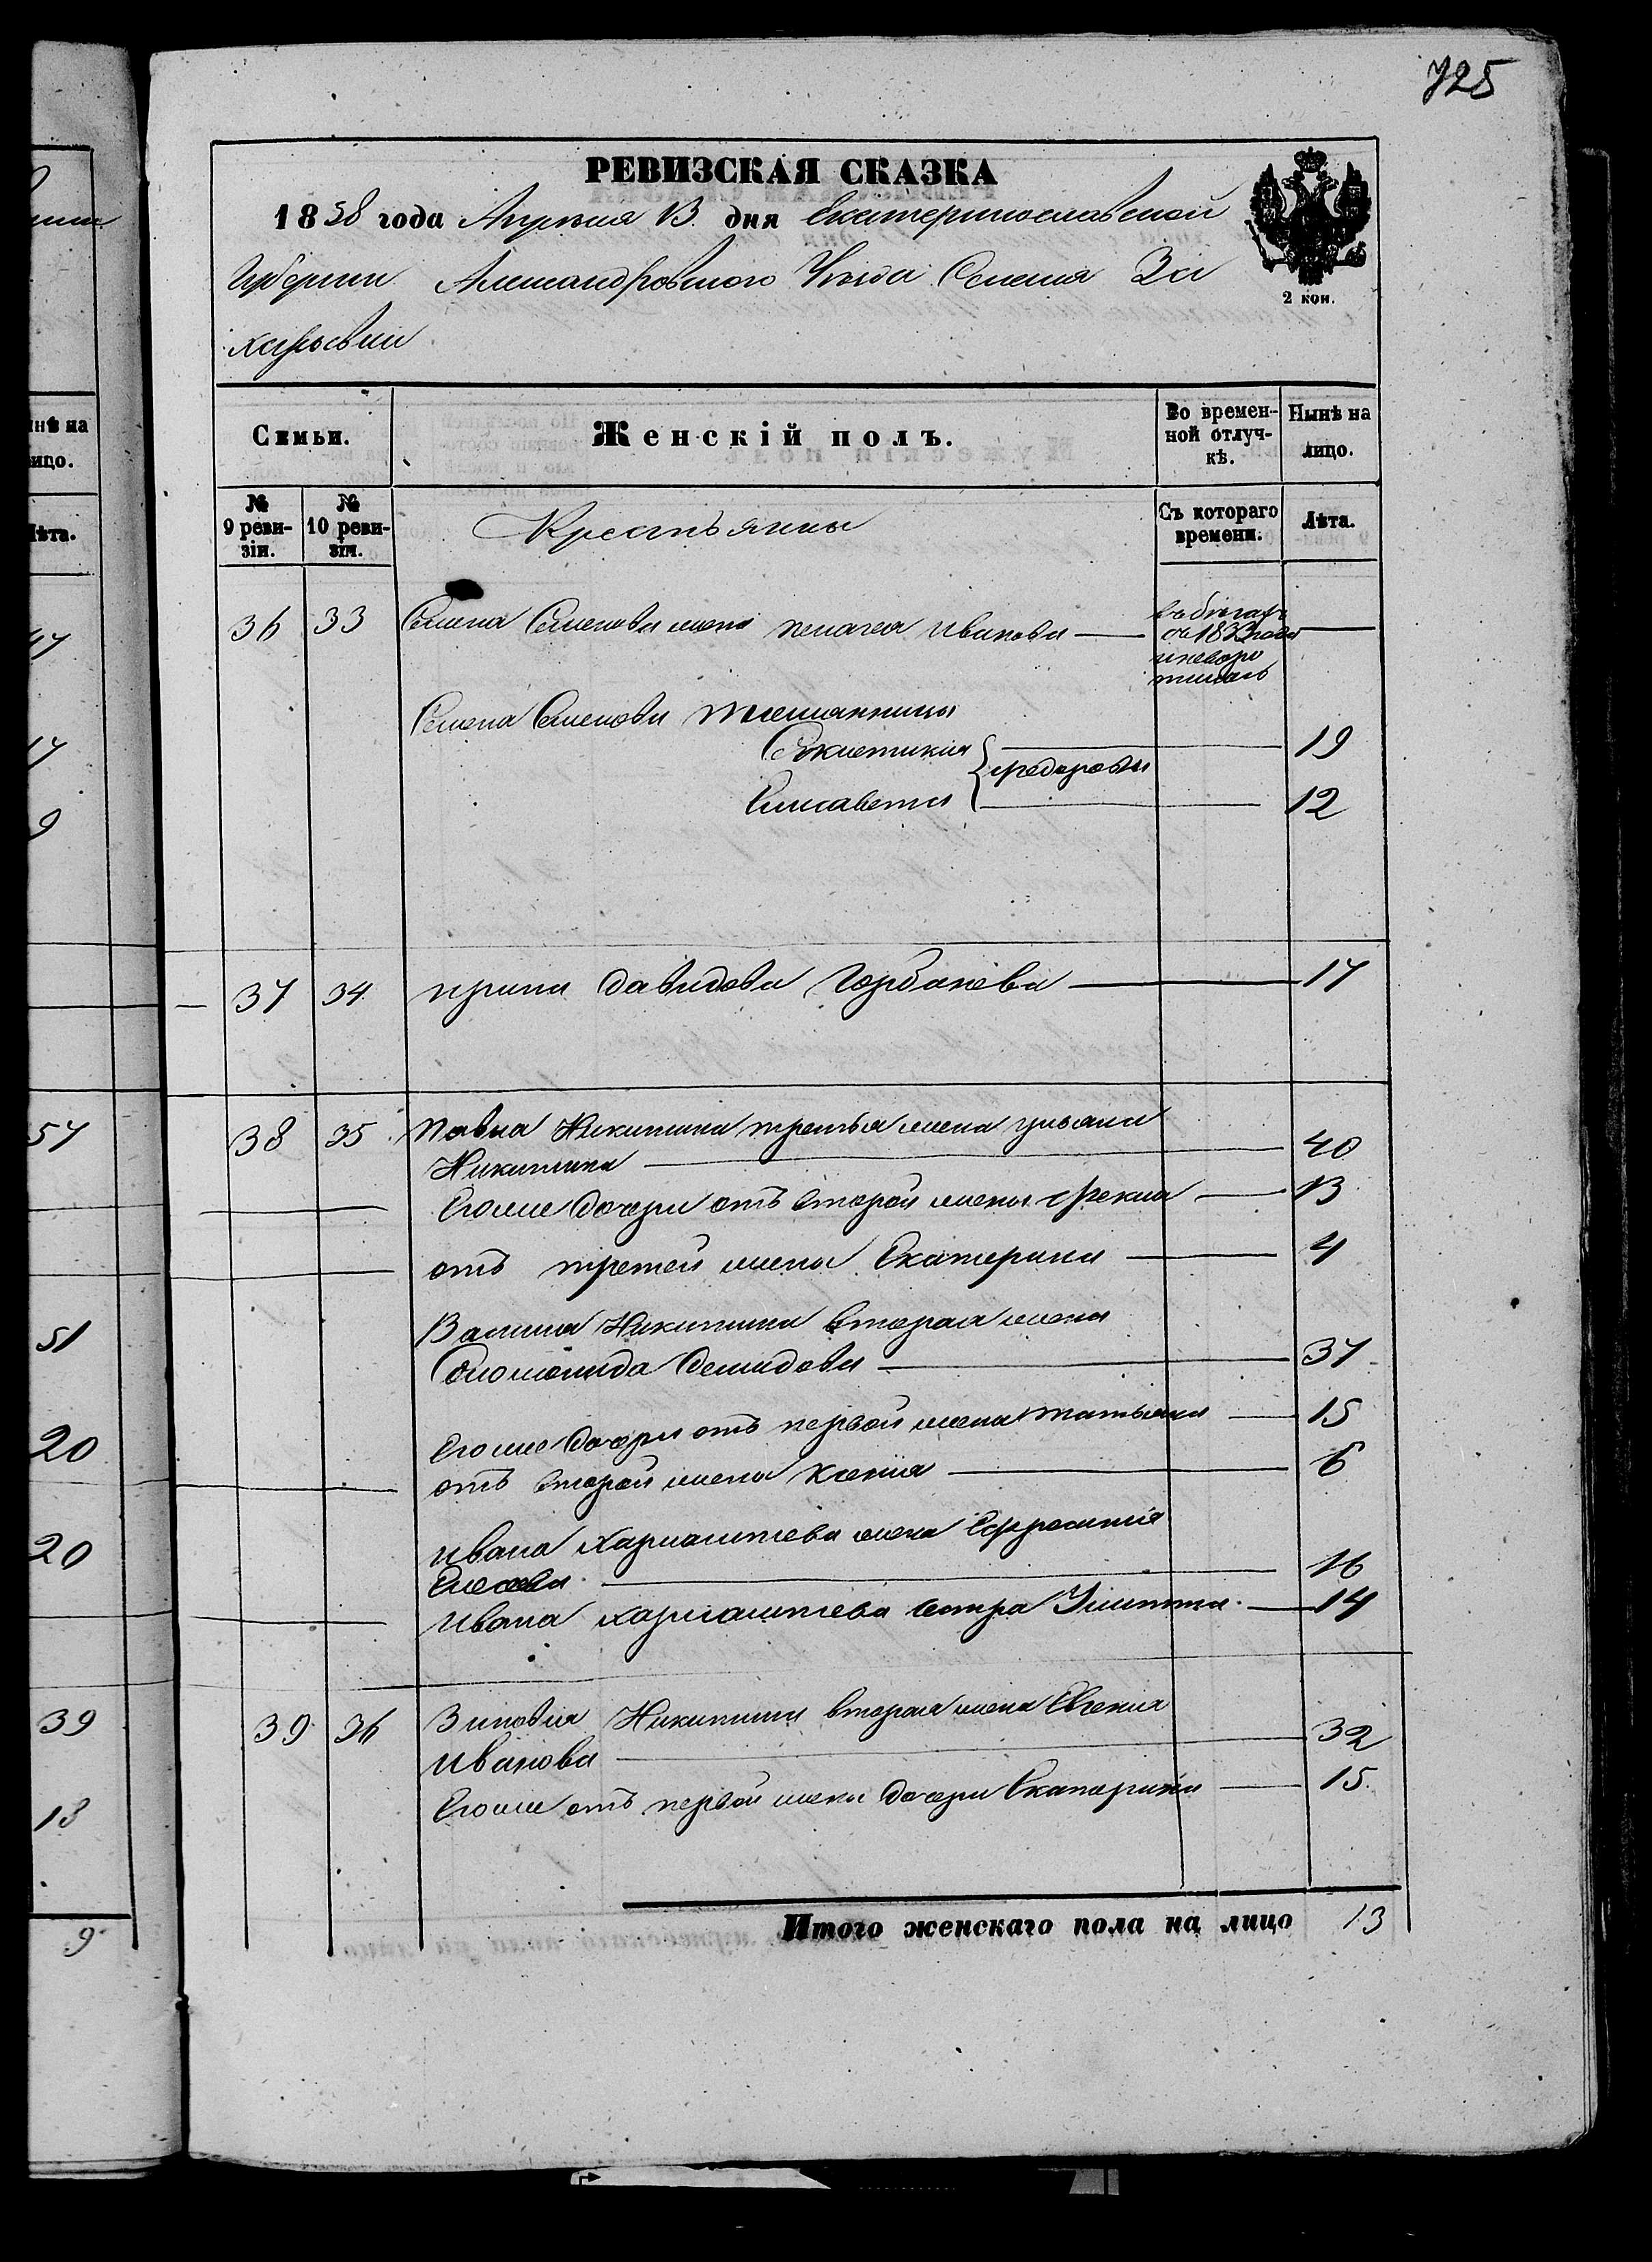 725
РЕВИЗСКАЯ СКАЗКА
1858 года Апреля 13 дня Екатеринославской
Губернии Александровского Уезда Селения За
харьевки
2 коп.
Семьи.
Женскій полъ.
Во времен-
ной отлуч-
кѣ.
Нынѣ на
лицо.
№
9 реви-
зіи.
№
10 реви-
зіи.
Крестьяны
Съ котораго
времени.
Лѣта.
36 33 Семена Семенова жена пелагея иванова — въ бегахъ
съ 1833 года —
и неворо
тилась
Семена Семенова племянницы
Евгения 19
федоровы
Елисавета 12
37 34 ирина давидова Горбанева — 17
38 35 павла Никитина третья жена ульяна
Никитина — 40
Егоже дочери отъ второй жены фекла — 13
отъ третей жены Екатерина — 4
Никитина вторая жена
Соломонида Демидова — 37
Егоже дочери отъ первой жены татьяна — 15
отъ второй жены ксения — 6
ивана жена Ефросиния
16
ивана сестра — 14
39 36 Зиновия Никитина вторая жена Евгения
иванова — 32
Егоже отъ первой жены дочери Екатерина — 15
Итого женскаго пола на лицо 13
нѣ на
ицо.
ѣта.
47
17
9
57
51
20
20
39
18
9